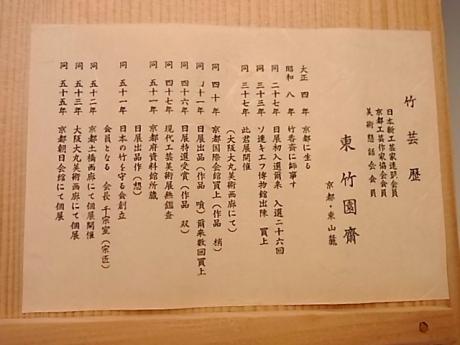 竹芸歴
日本新工芸家連盟会員
京都工芸作家協会会員
美術懇話会会員
東竹園齋
京都・東山麓
大正四年 京都に生る
昭和八年 竹香斎に師事す
同二十七年 日展初入選爾来入選二十六回
同三十三年 ソ連キエフ博物館出陳買上
同三十七年 此君展開催
(大阪大丸美術画廊にて)
同四十年 京都国際会館買上(作品 梢)
同四十一年 日展出品(作品 噴)爾来数回買上
同四十六年 日展特選受賞(作品 双)
同四十七年 現代工芸美術展無鑑査
同五十一年 京都府資料館所蔵
日展出品作(想)
同五十一年 日本の竹を守る会創立
会員となる 会長 千宗室(宗匠)
同五十二年 京都土橋画廊にて個展開催
同五十三年 大阪大丸美術画廊にて個展
同五十五年 京都朝日会館にて個展